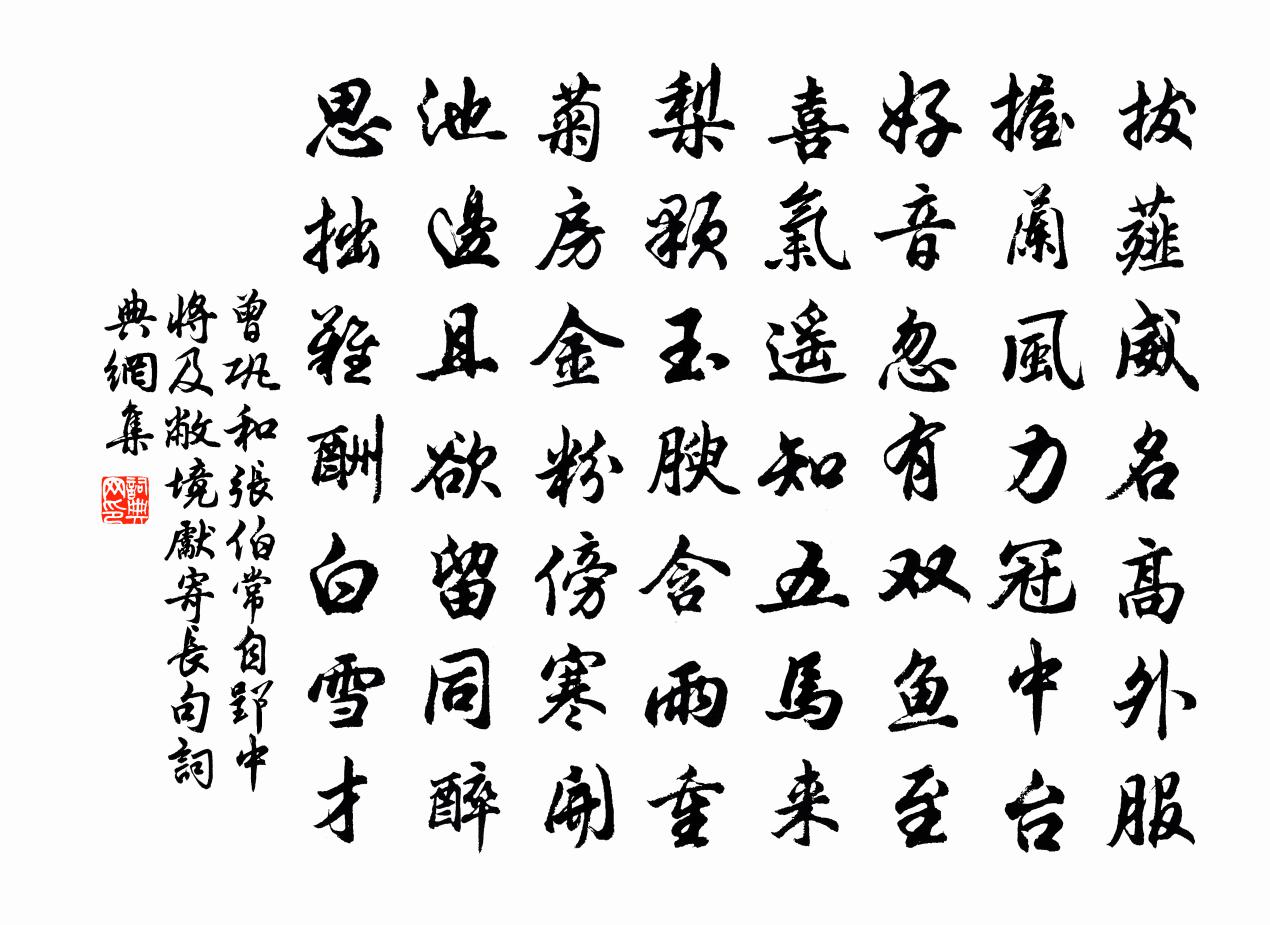 拔薤威名高外服
握蘭風力冠中台
好音忽有双鱼至
喜氣遥知五馬来
梨顆玉腴含雨重
菊房金粉傍寒開
池邊且欲留同醉
思拙難酬白雪才
曾巩和張伯常自郢中
將及敝境獻寄長句詞
典網集
詞典
网印